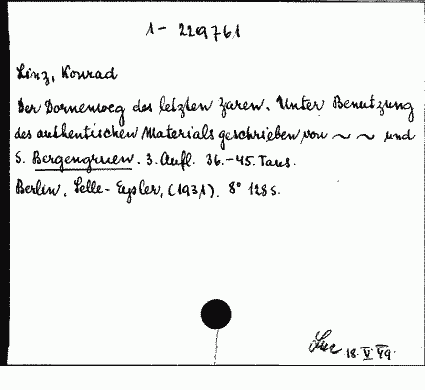 1- 229761
Linz, Konrad
Der Dornenweg des letzten Zaren. Unter Benutzung
des authentischen Materials geschrieben von ~ ~ und
S. Bergengruen. 3. Aufl. 36.-45. Taus.
Berlin, Selle-Eysler, (1931). 8° 128 S.
18. V. 49.